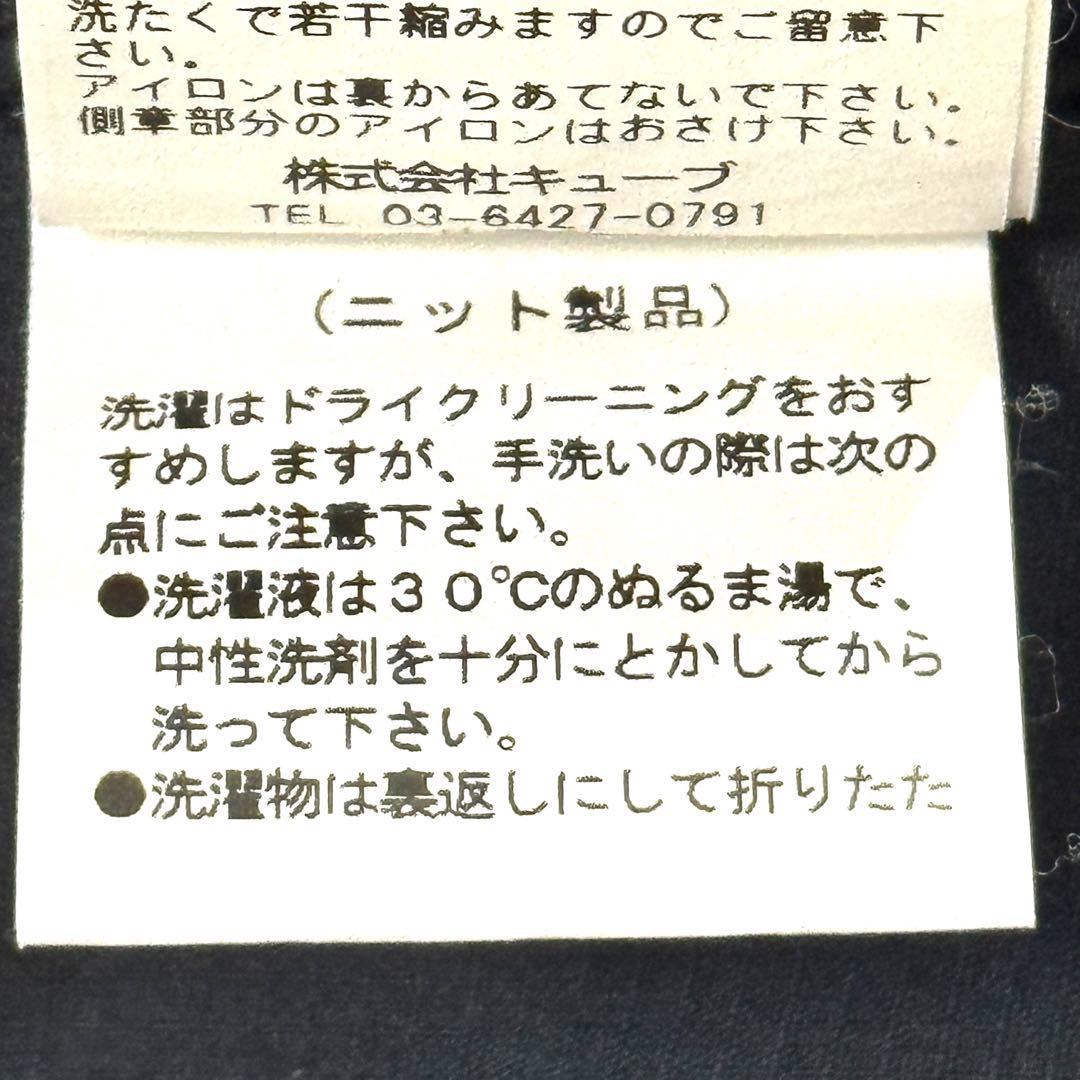 洗たくで若干縮みますのでご留意下
さい。
アイロンは裏からあてないで下さい。
側章部分のアイロンはおさけ下さい。
株式会社キューブ
TEL 03-6427-0791
(ニット製品)
洗濯はドライクリーニングをおす
すめしますが、手洗いの際は次の
点にご注意下さい。
●洗濯液は30℃のぬるま湯で、
中性洗剤を十分にとかしてから
洗って下さい。
●洗濯物は裏返しにして折りたた